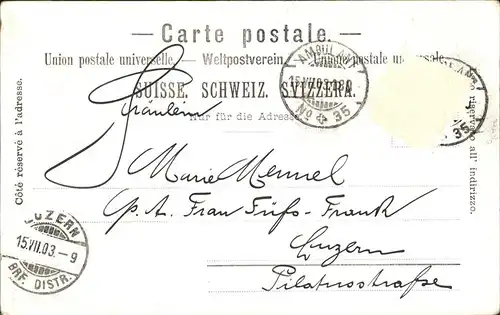 Carte postale.
Union postale universelle. — Weltpostverein. — Unione postale universale.
SUISSE. SCHWEIZ. SVIZZERA.
Nur für die Adresse
Côté réservé à l'adresse.
riservato all' indirizzo.
AMBULANT
15.VII.03
No 35
35
Fräulein
Marie Mennel
p. A. Frau Füfs-Frank
Luzern
Pilatusstraße
LUZERN
15.VII.03.-9
BRF. DISTR.